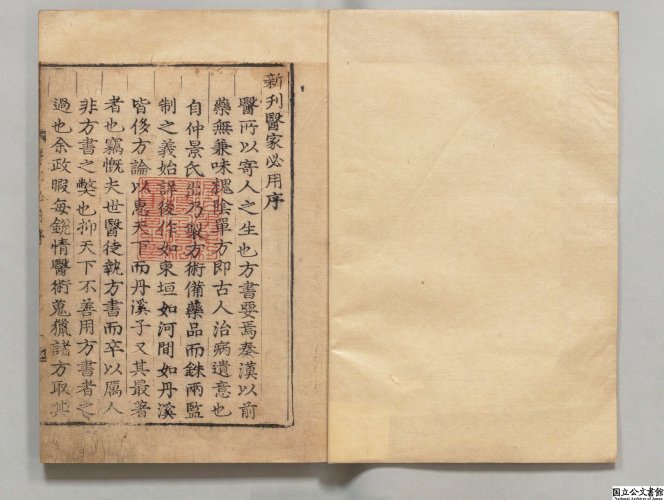 新刊醫家必用序
醫所以寄人之生也方書要焉秦漢以前
藥無兼味槐陰單方即古人治病遺意也
自仲景氏出乃製方術備藥品而銖兩監
制之義始詳後作如東垣如河間如丹溪
皆侈方論以惠天下而丹溪子又其最著
者也竊慨夫世醫徒執方書而卒以厲人
非方書之弊也抑天下不善用方書者之
過也余政暇每銳情醫術蒐獵諸方取其
国立公文書館
National Archives of Japan